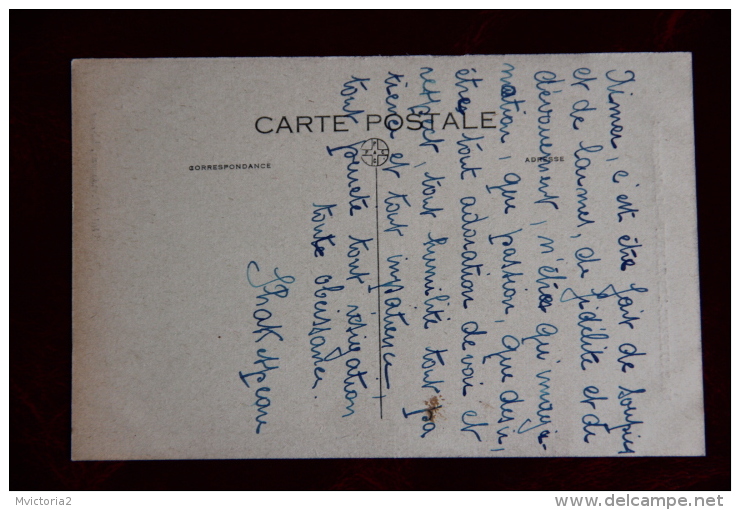 CARTE POSTALE
CORRESPONDANCE
ADRESSE
Aimer, c'est être fait de soupirs
et de larmes, de fidélité et de
dévouement, n'être qu'imagi-
nation, que passion, que desir,
être tout adoration devoir et
respect, tout humilité tout pa
tience et tout impatience,
tout pureté tout résignation
toute obeissance.
Shakespeare
Mvictoria2
delcampe.net